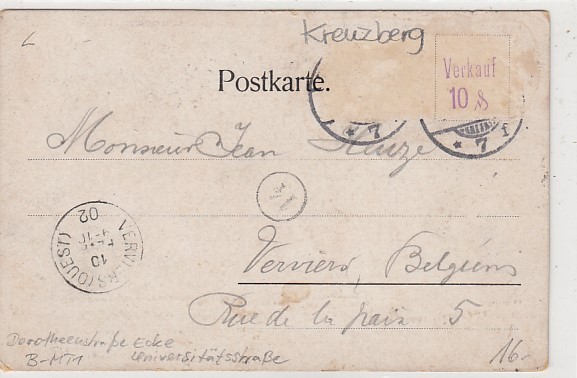 L
Kreuzberg
Verkauf
10 ₰
Postkarte.
* 7
* 7 f
Monsieur Jean
VERVIERS (OUEST)
10
02
Verviers, Belgiens
Rue de la paix 5
Dorotheenstraße Ecke
Universitätsstraße
B-MT1
16.-